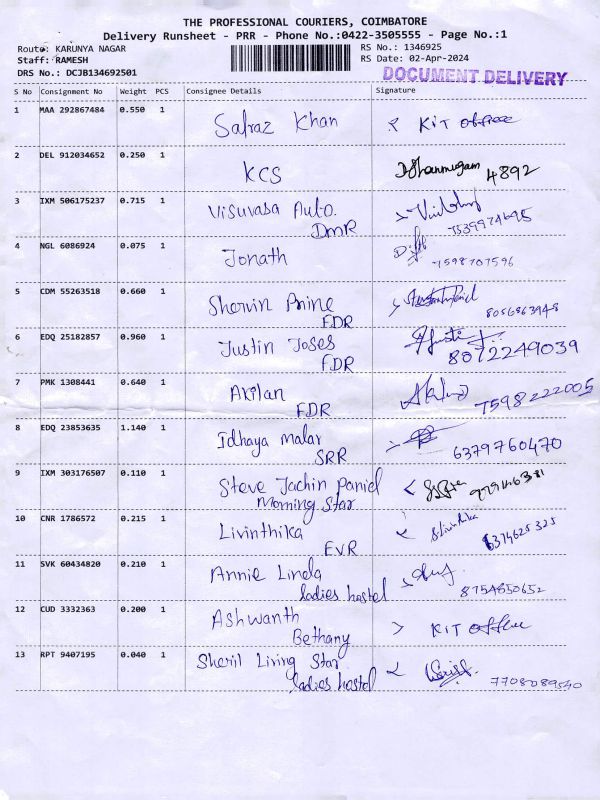 THE PROFESSIONAL COURIERS, COIMBATORE
Delivery Runsheet - PRR - Phone No.:0422-3505555 - Page No.:1
Route: KARUNYA NAGAR
RS No.: 1346925
Staff: RAMESH
RS Date: 02-Apr-2024
DRS No.: DCJB134692501
DOCUMENT DELIVERY
S No Consignment No Weight PCS Consignee Details Signature
1 MAA 292867484 0.550 1 Safraz Khan KIT office
2 DEL 912034652 0.250 1 KCS D Shanmugam 4892
3 IXM 506175237 0.715 1 Visuvasa Auto.
DMR 7539974695
4 NGL 6086924 0.075 1 Jonath
7598707596
5 CDM 55263518 0.660 1 Shervin Prine
FDR 8056863948
6 EDQ 25182857 0.960 1 Justin Joses
FDR 8072249039
7 PMK 1308441 0.640 1 Akilan
FDR 7598222005
8 EDQ 23853635 1.140 1 Idhaya malar
SRR 6379760470
9 IXM 303176507 0.110 1 Steve Jachin Daniel
Morning Star
10 CNR 1786572 0.215 1 Livinthika
EVR 6374625325
11 SVK 60434820 0.210 1 Annie Linda
ladies hostel 8754850652
12 CUD 3332363 0.200 1 Ashwanth
Bethany KIT office
13 RPT 9407195 0.040 1 Sheril Living Star
ladies hostel 7708089540